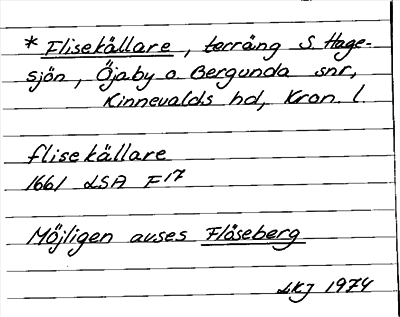 * Flisekällare, terräng S. Hage-
sjön, Öjaby o. Bergunda snr,
Kinnevalds hd, Kron. l.
flisekällare
1661 LSA F17
Möjligen avses Flåseberg
LKJ 1974